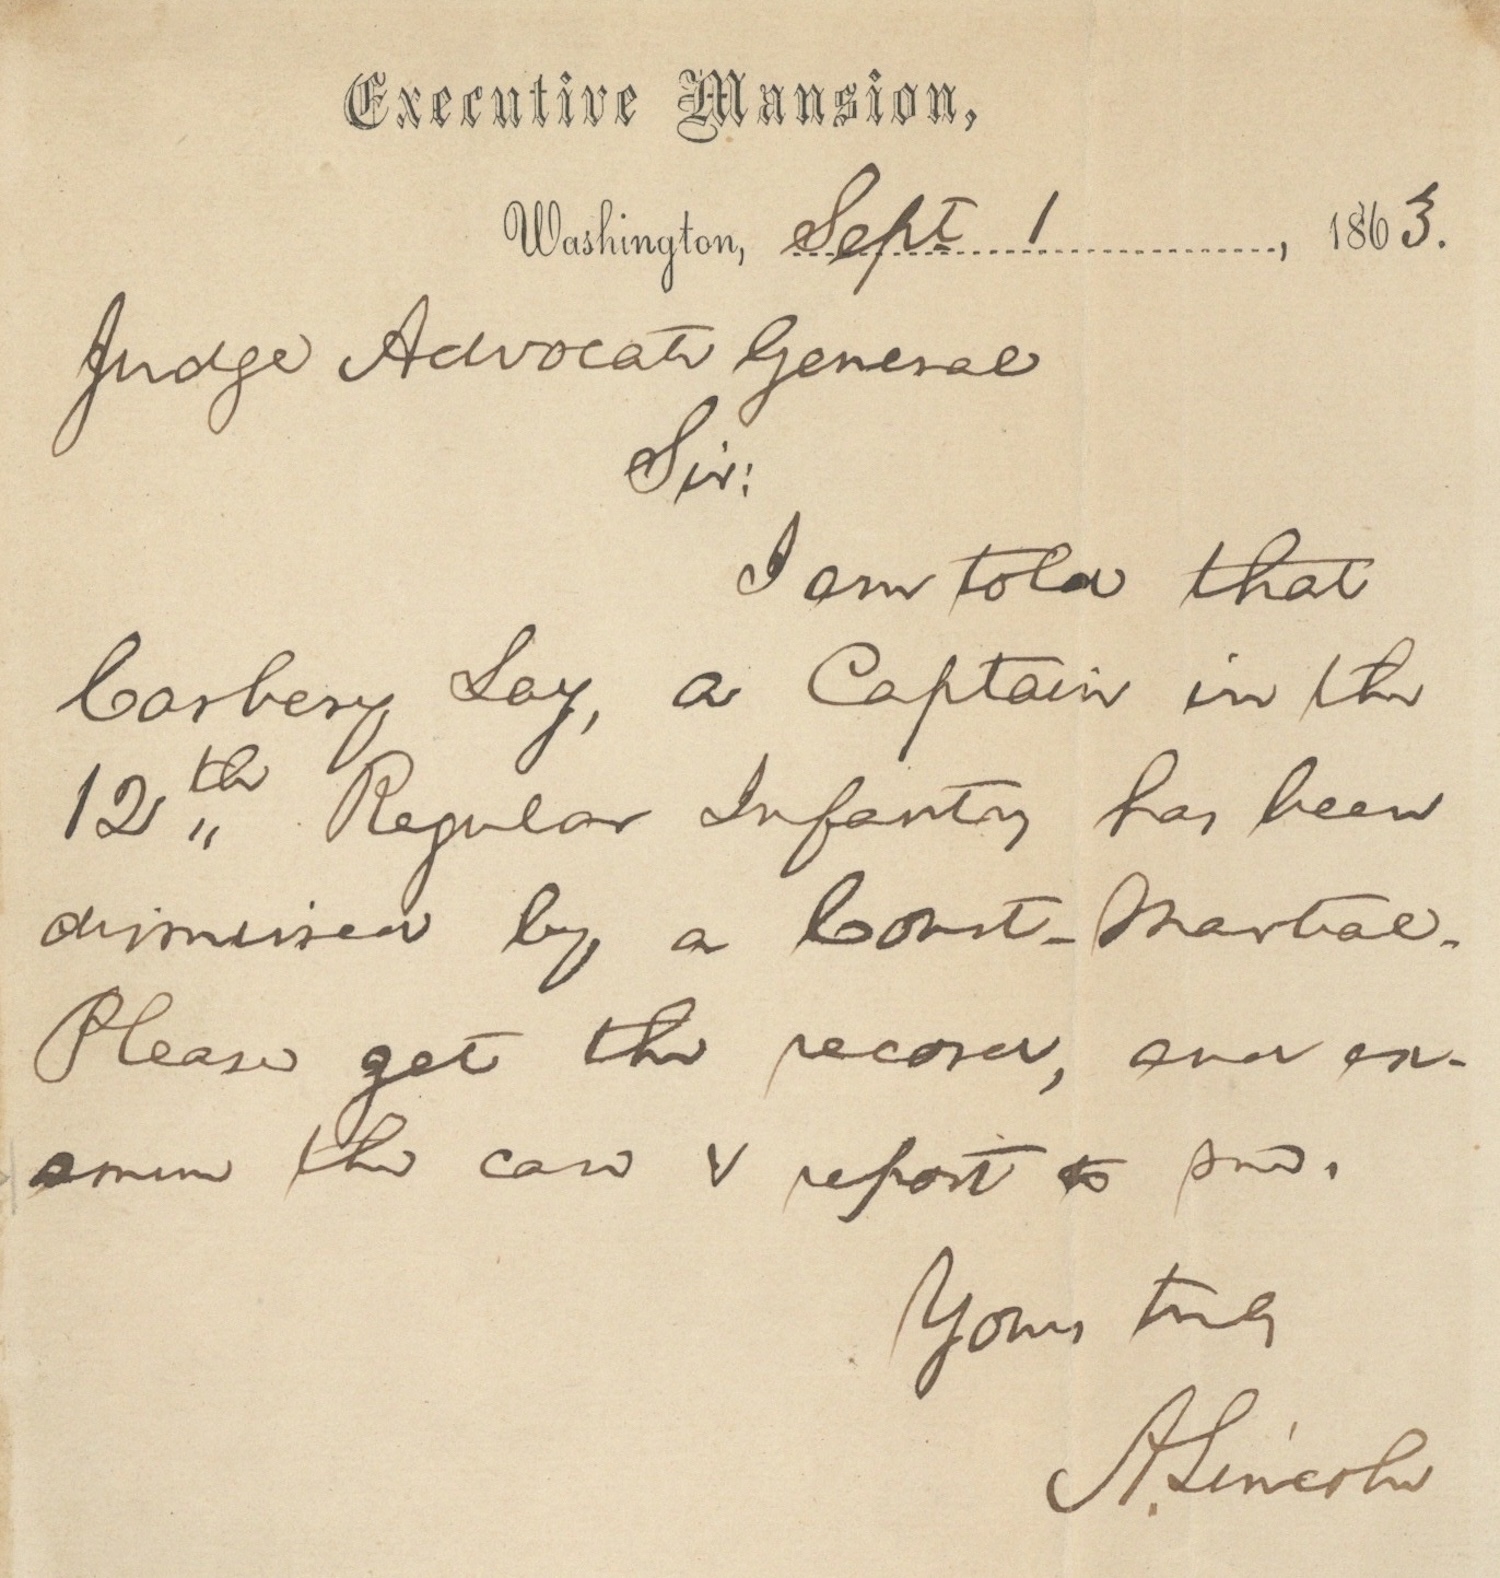 Executive Mansion,
Washington, Sept. 1, 1863.
Judge Advocate General
Sir:
I am told that
Carbery Lay, a Captain in the
12th Regular Infantry has been
dismissed by a Court-Martial.
Please get the record, and ex-
amine the case & report to me.
Yours truly
A. Lincoln